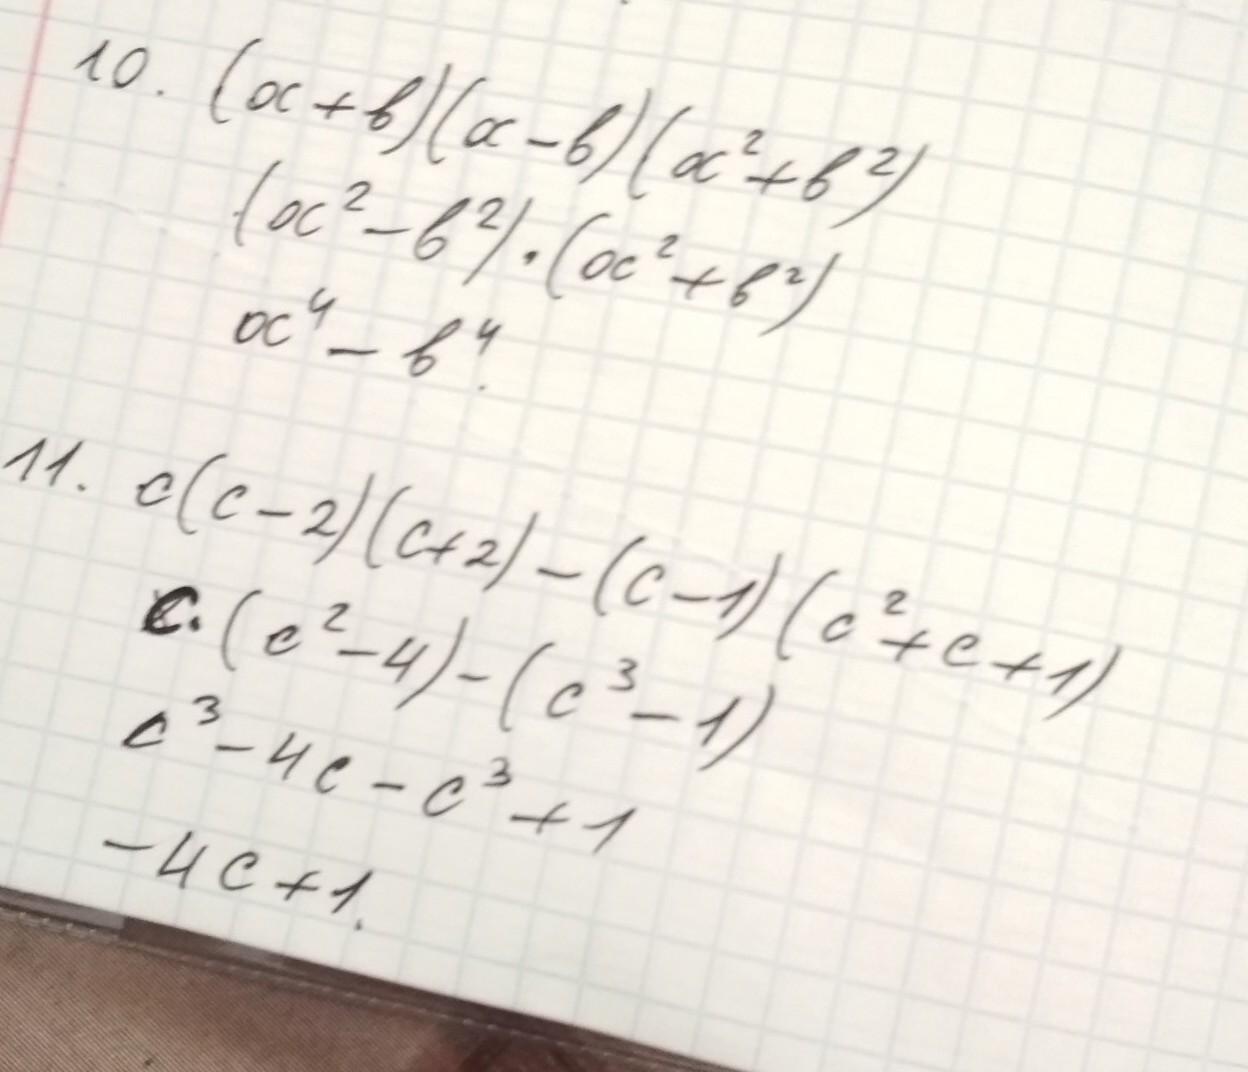 10. (a+b)(a-b)(a²+b²)
(a²-b²)·(a²+b²)
a⁴-b⁴.
11. c(c-2)(c+2)-(c-1)(c²+c+1)
c·(c²-4)-(c³-1)
c³-4c-c³+1
-4c+1.